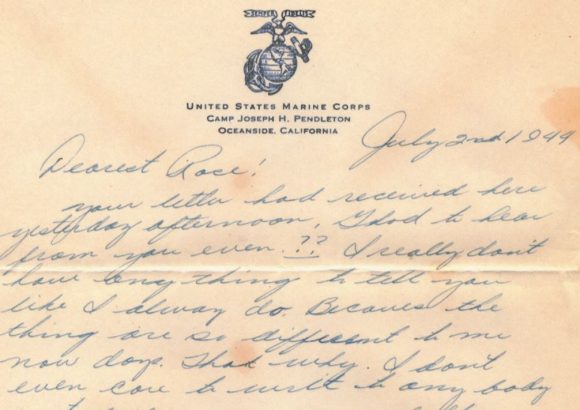 SEMPER FIDELIS
UNITED STATES MARINE CORPS
CAMP JOSEPH H. PENDLETON
OCEANSIDE, CALIFORNIA
July 2nd 1944
Dearest Rose!
your letter had received here
yesterday afternoon, Glad to hear
from you even.?? I really don't
have any thing to tell you
like I alway do. Becaues the
thing are so different to me
now days. That why. I don't
even care to writ to any body